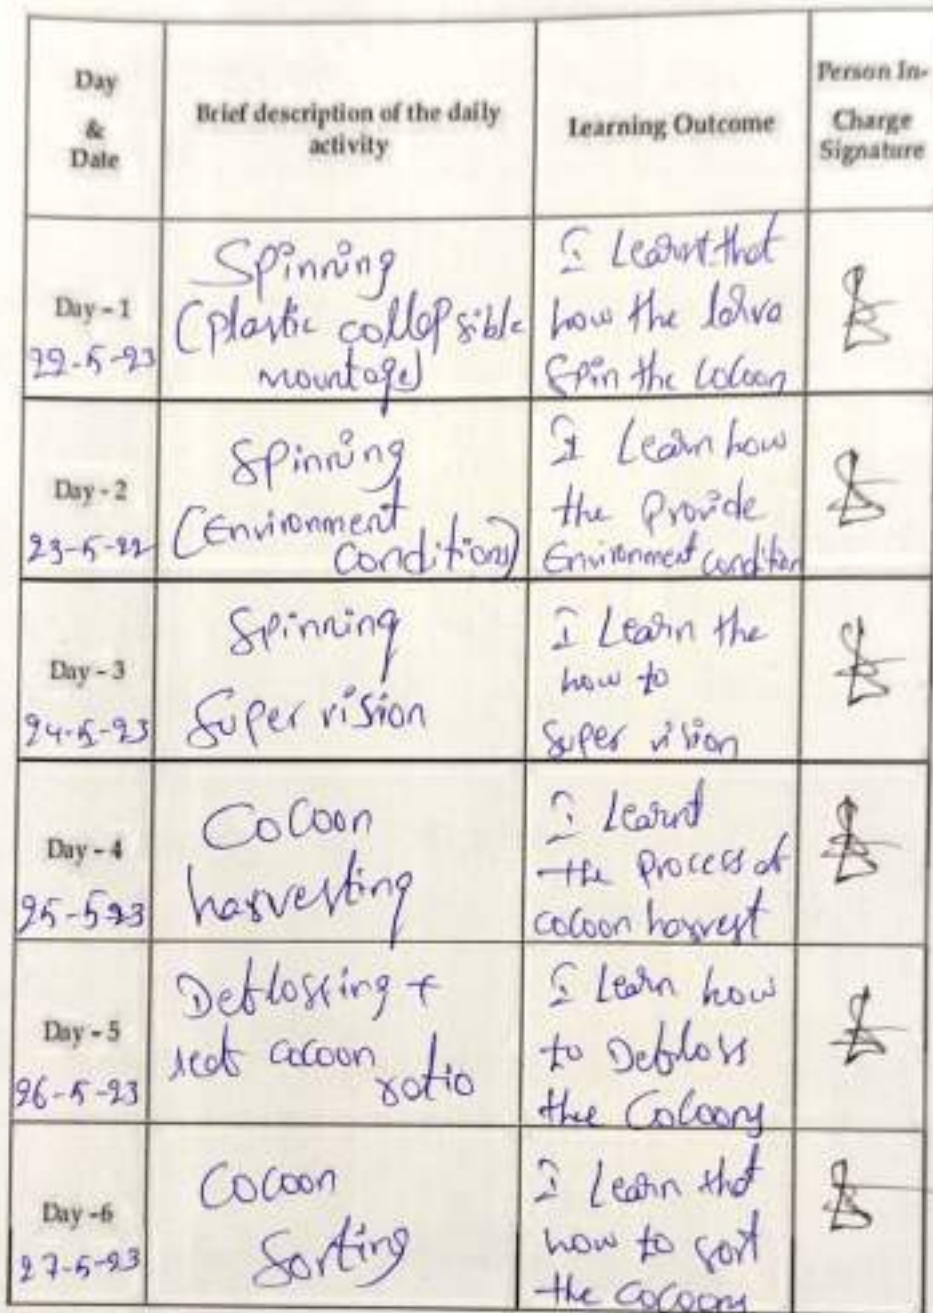 Day
&
Date
Brief description of the daily
activity
Learning Outcome
Person In-
Charge
Signature
Day - 1
22-5-23
Spinning
(plastic collapsible
mountage)
I Learnt that
how the larva
spin the cocoon
Day - 2
23-5-22
Spinning
(Environment
conditions)
I Learn how
the provide
Environment condition
Day - 3
24-5-23
Spinning
Super vision
I Learn the
how to
super vision
Day - 4
25-523
Cocoon
harvesting
I Learnt
the process of
cocoon harvest
Day - 5
26-5-23
Deflossing +
cocoon
ratio
I Learn how
to Defloss
the Cocoons
Day -6
27-5-23
Cocoon
Sorting
I Learn that
how to sort
the cocoons